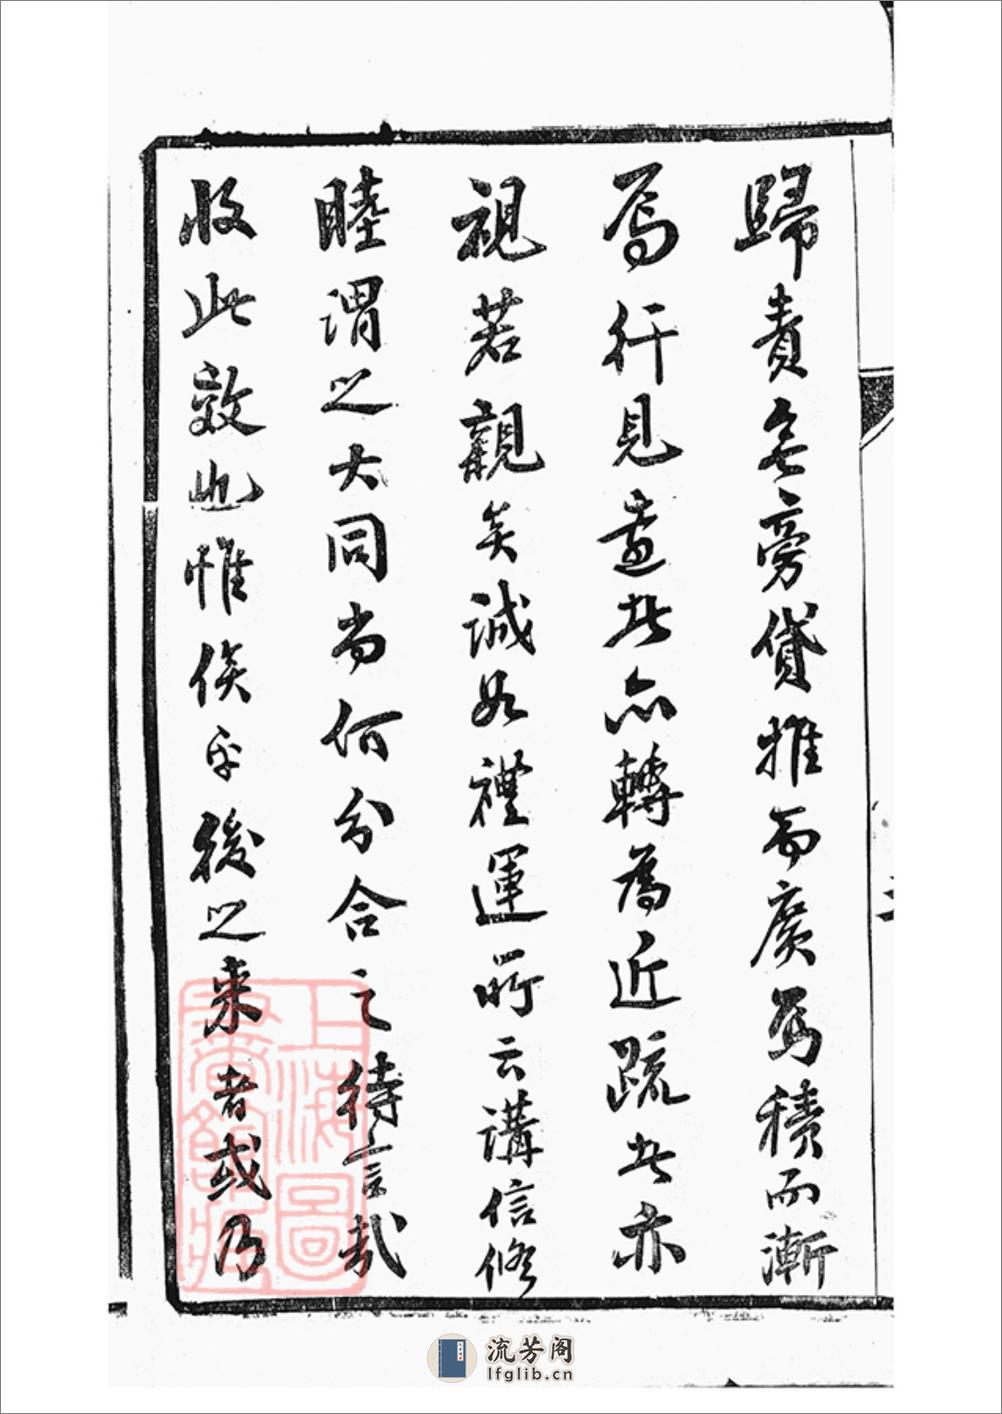 歸責無旁貸推而廣焉積而漸
焉行見遠者亦轉為近疏者亦
視若親矣誠如禮運所云講信修
睦謂之大同尚何分合之待言哉
收此效也惟俟乎後之来者或乃
上海圖書館藏
流芳阁
lfglib.cn